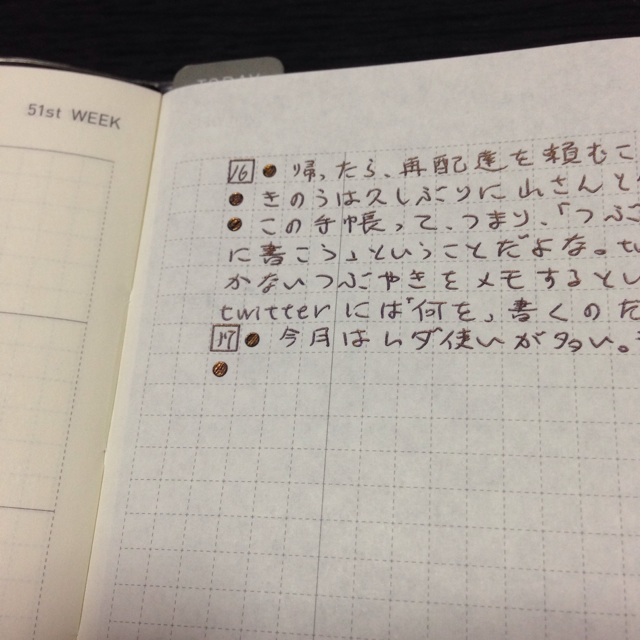 51st WEEK
TODAY
16 ● 帰ったら、再配達を頼むこ
● きのうは久しぶりに山さんと
● この手帳って、つまり、「つぶ
に書こう」ということだよな。
かないつぶやきをメモするとい
twitterには「何を」書くのた
17 ● 今月はムダ使いが多い。
●